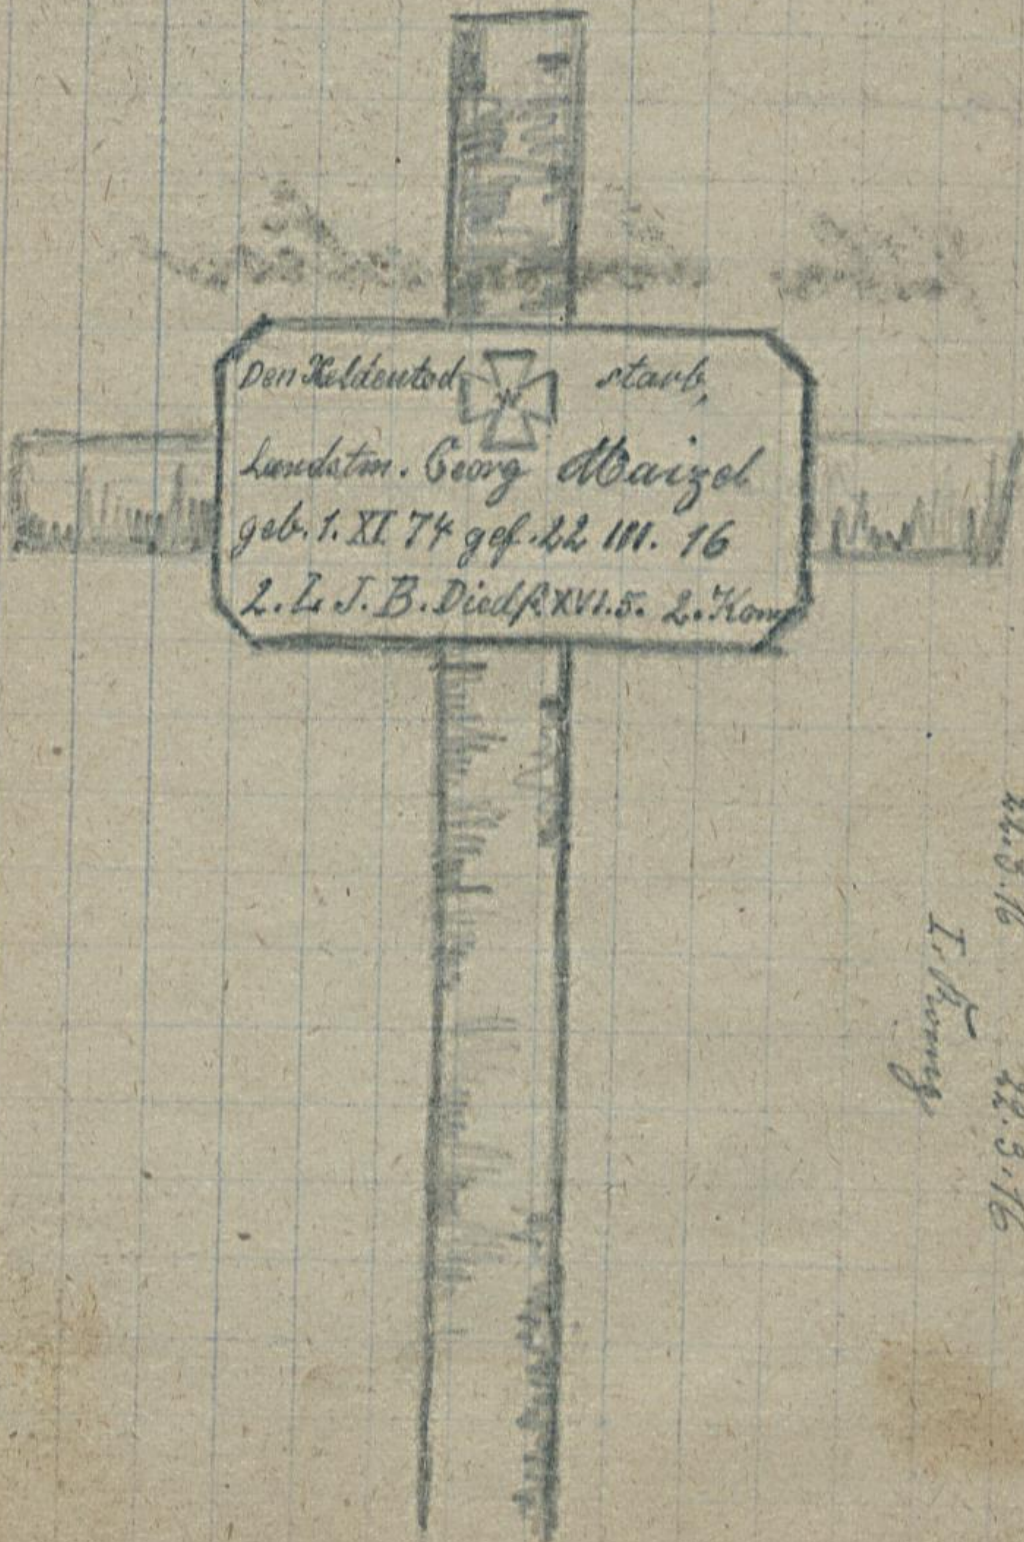 Den Heldentod starb,
Landstm. Georg Maizel
geb. 1. XI. 74 gef. 22 III. 16
2. L. I. B. Diedh. XVI. 5. 2. Komp
22.3.16 22.3.16